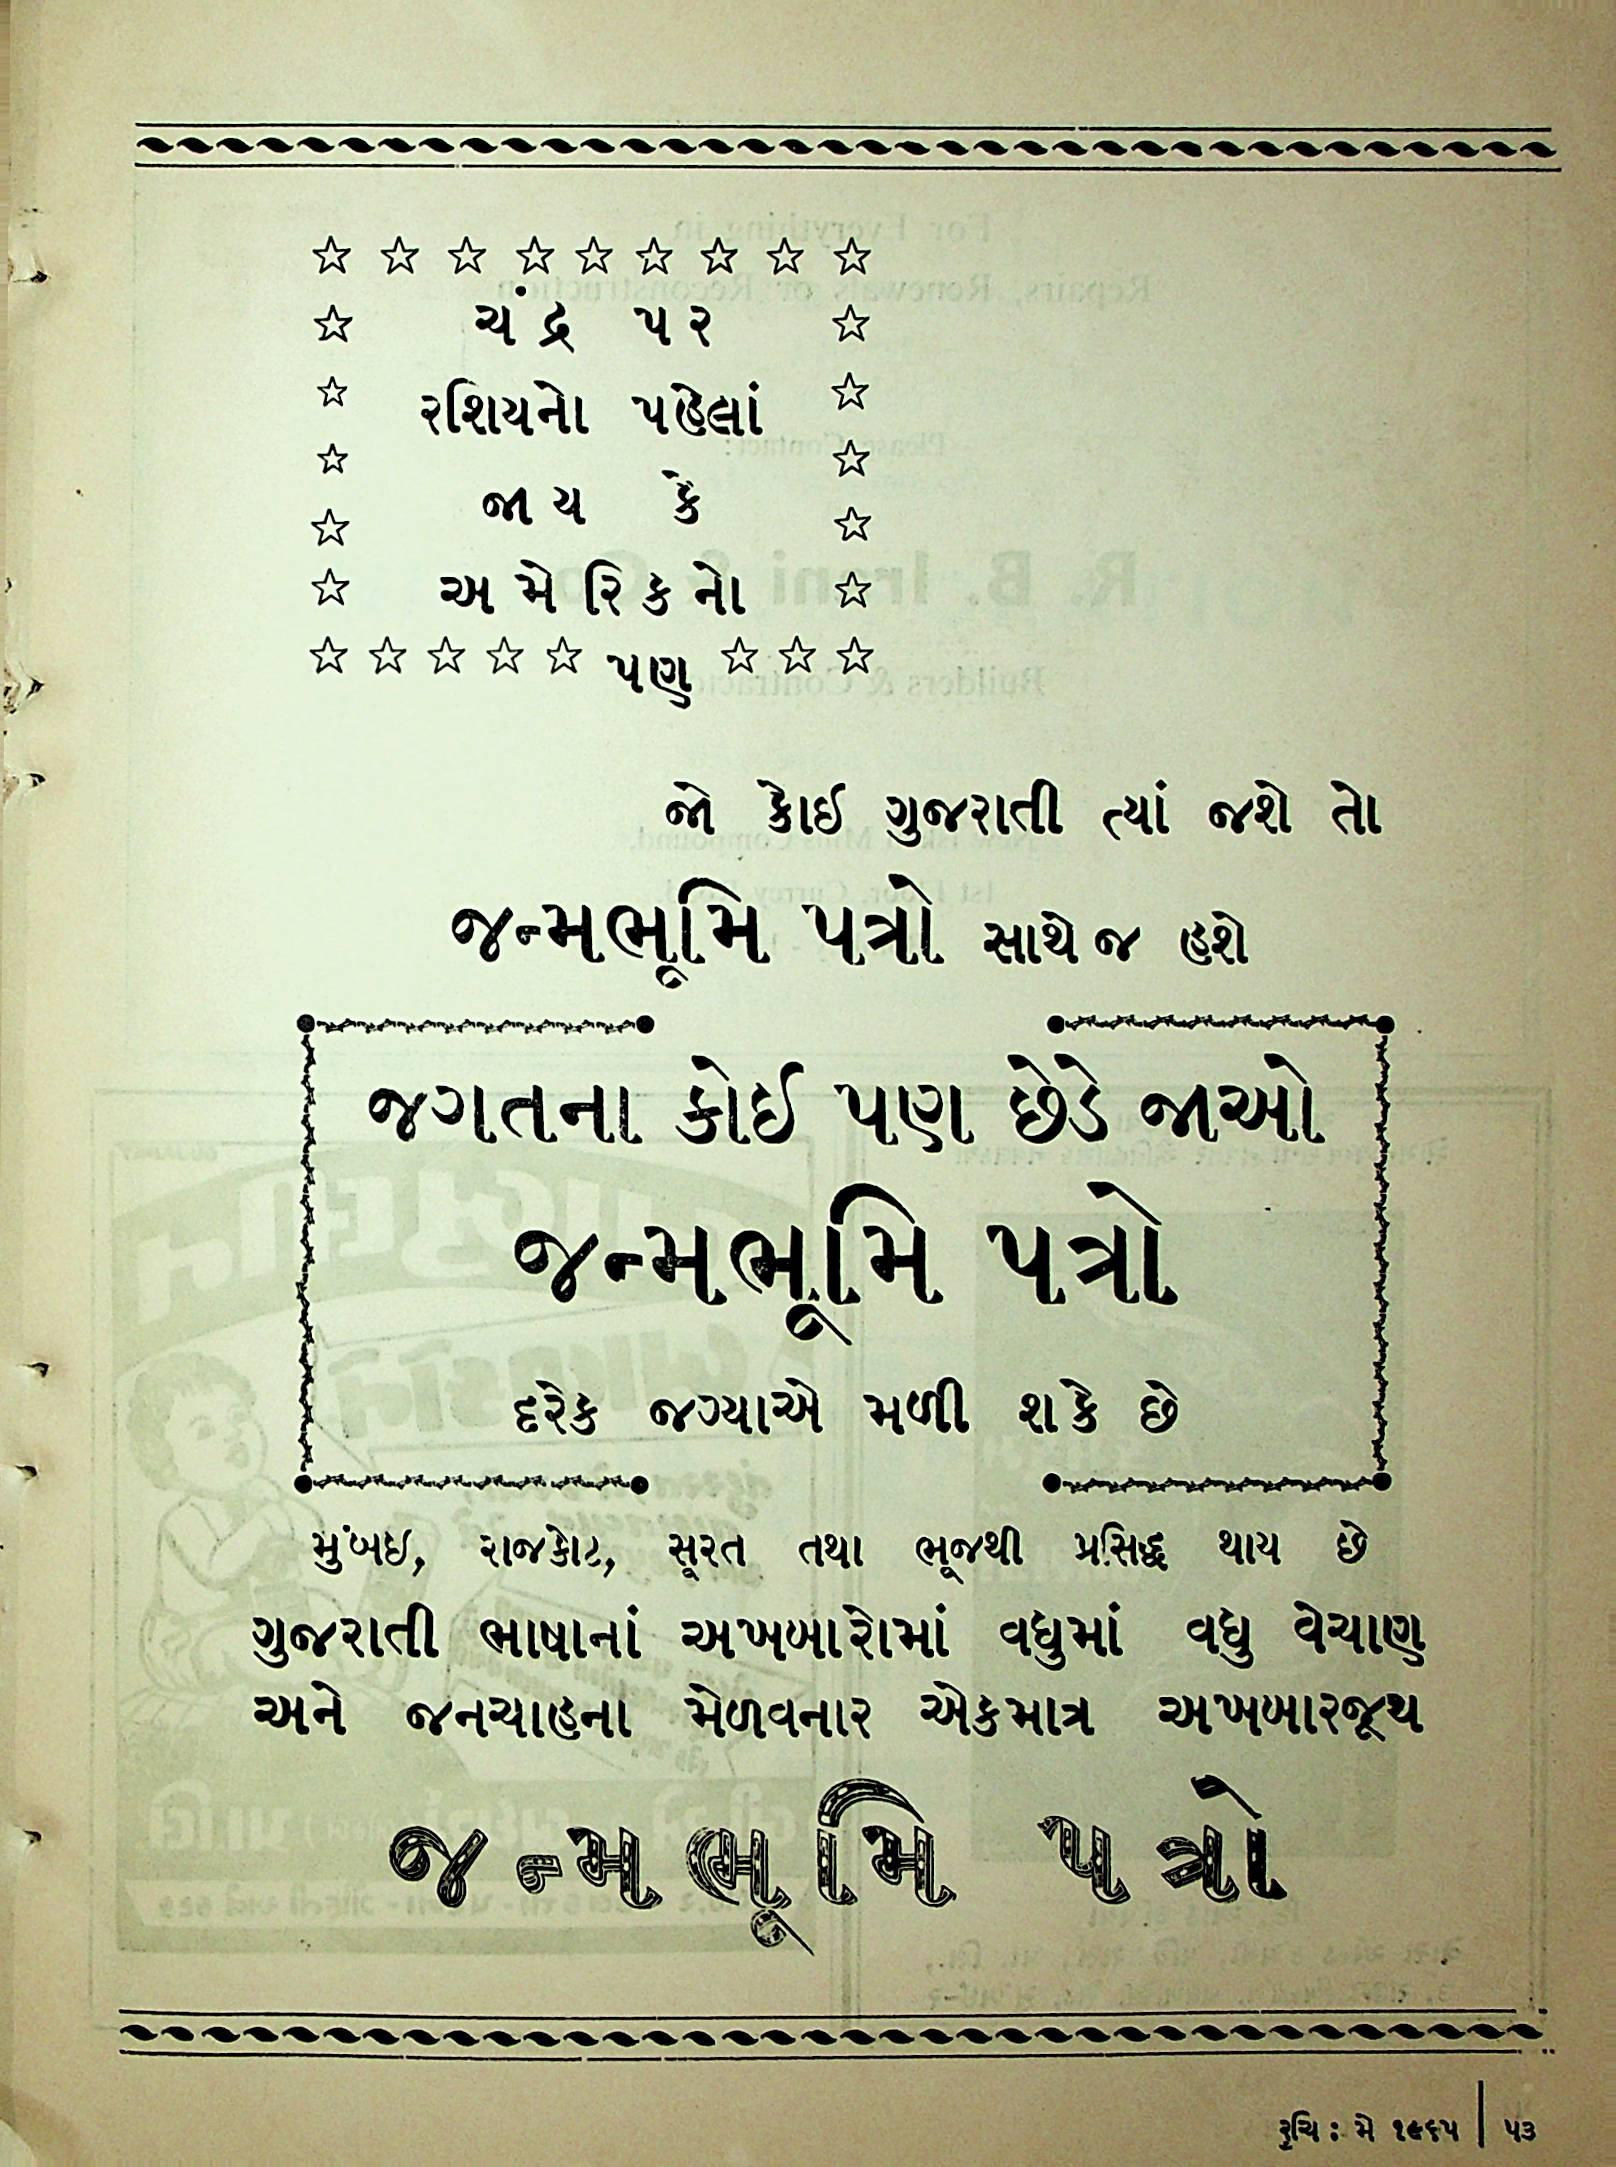 ચંદ્ર પર
રશિયનો પહેલાં
જાય કે
અમેરિકનો
પણ
જો કોઈ ગુજરાતી ત્યાં જશે તો
જન્મભૂમિ પત્રો સાથે જ હશે
જગતના કોઈ પણ છેડે જાઓ
જન્મભૂમિ પત્રો
દરેક જગ્યાએ મળી શકે છે
મુંબઇ, રાજકોટ, સૂરત તથા ભૂજથી પ્રસિદ્ધ થાય છે
ગુજરાતી ભાષાનાં અખબારોમાં વધુમાં વધુ વેચાણ
અને જનચાહના મેળવનાર એકમાત્ર અખબારજૂથ
જન્મભૂમિ પત્રો
રુચિ : મે ૧૯૬૫ | ૫૩